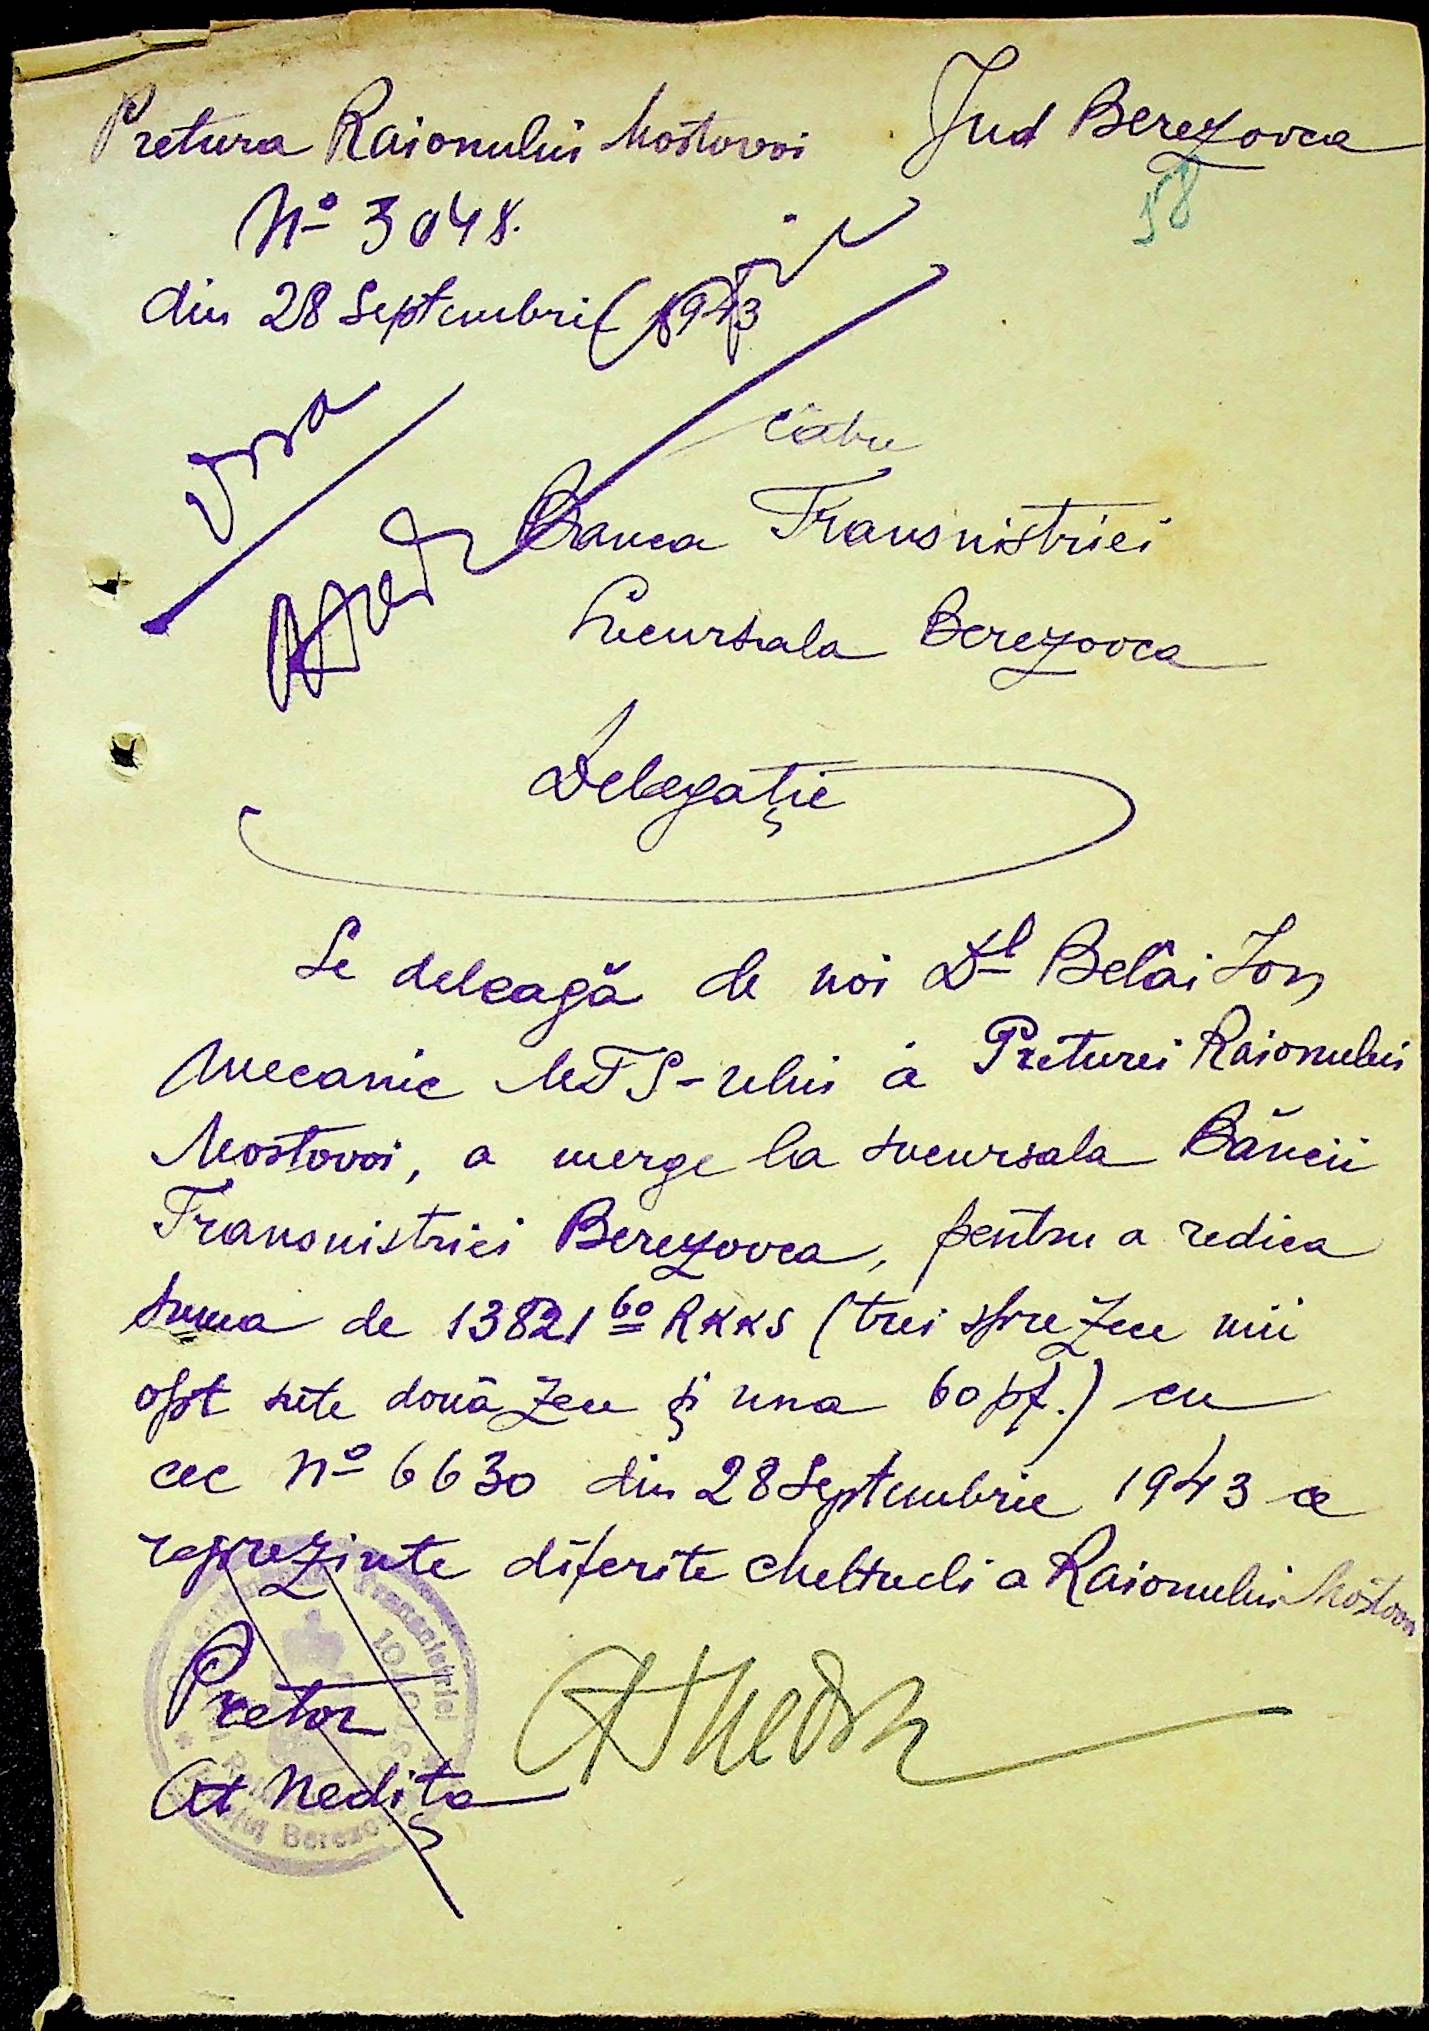 Pretura Raionului Mostovoi Jud Berezovca
58
No 3048.
din 28 Septembrie 1943
către
Banca Transnistriei
Sucursala Berezovca
Delegație
Se deleagă de noi Dl Belâi Ion
Mecanic MTS-ului a Preturei Raionului
Mostovoi, a merge la sucursala Băncii
Transnistriei Berezovca, pentru a redica
suma de 13821 60 RKKS (trei spre zece mii
opt sute două zeci și una 60 pf.) cu
cec No 6630 din 28 Septembrie 1943 ce
reprezinte diferite cheltueli a Raionului Mostovoi
Pretor
At Nedița
Transnistriei
Berezo